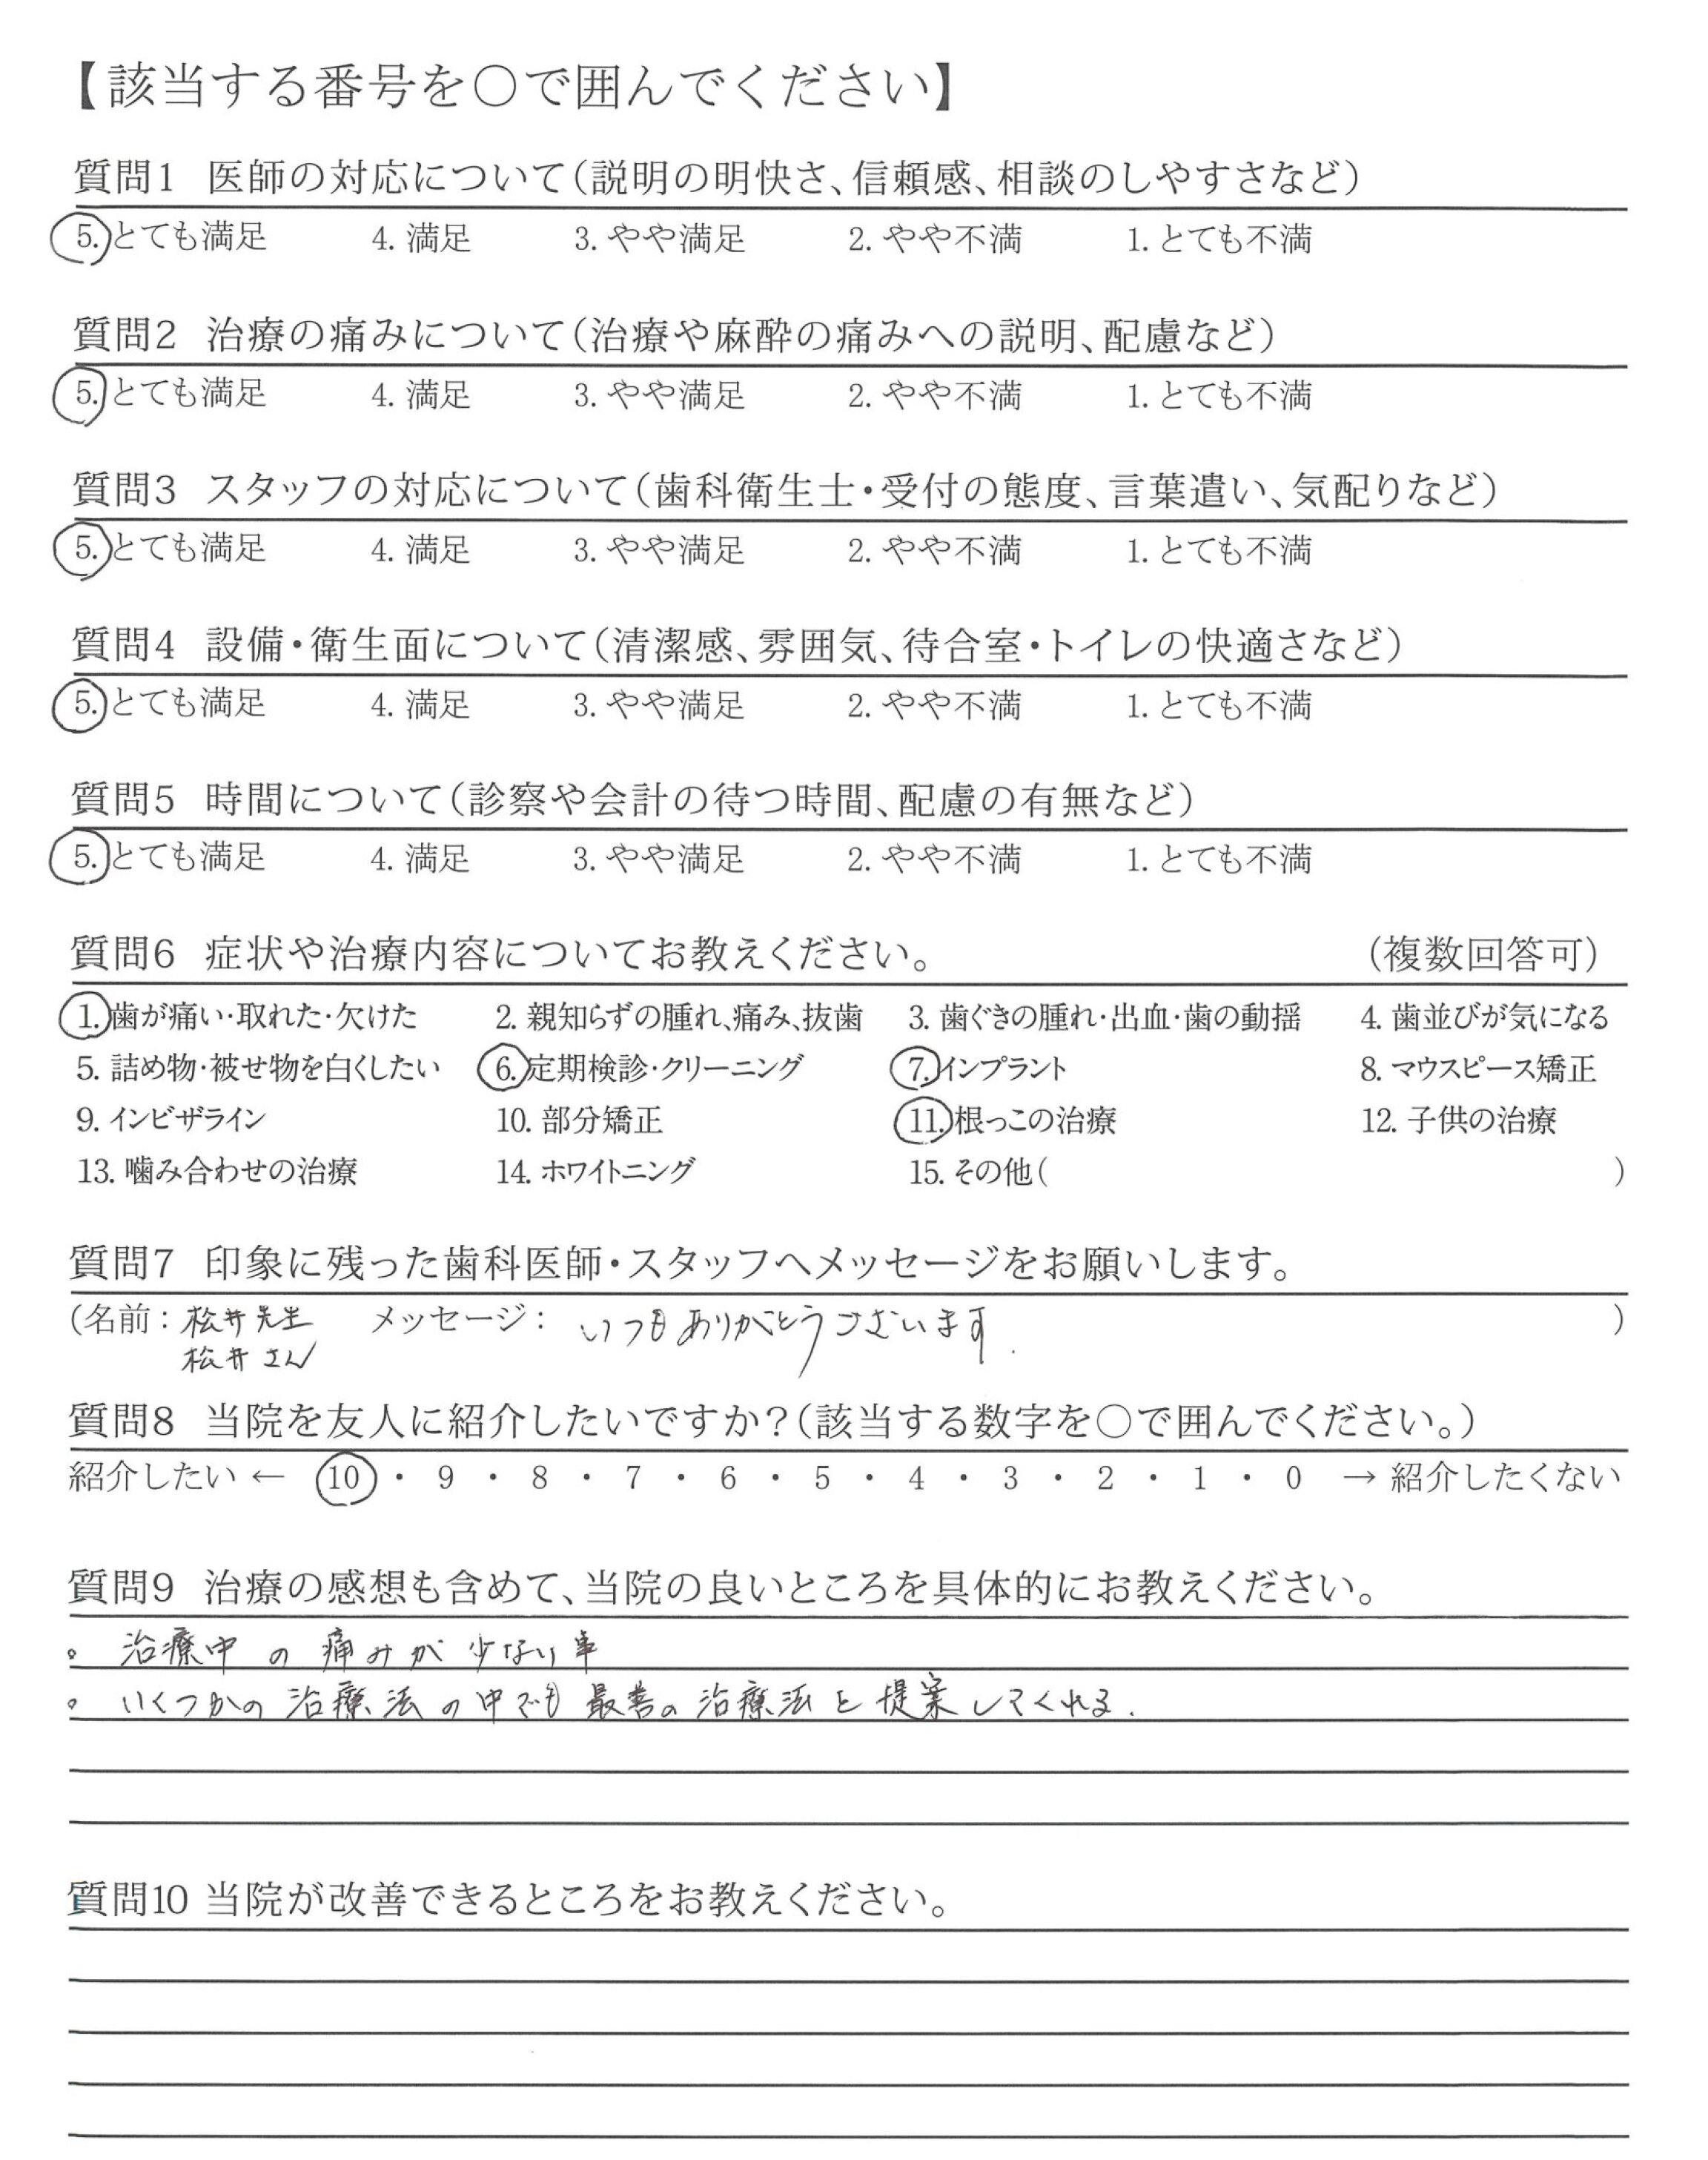 【該当する番号を○で囲んでください】
質問1 医師の対応について（説明の明快さ、信頼感、相談のしやすさなど）
5.とても満足 4. 満足 3. やや満足 2. やや不満 1. とても不満
質問2 治療の痛みについて（治療や麻酔の痛みへの説明、配慮など）
5.とても満足 4. 満足 3. やや満足 2. やや不満 1. とても不満
質問3 スタッフの対応について（歯科衛生士・受付の態度、言葉遣い、気配りなど）
5.とても満足 4. 満足 3. やや満足 2. やや不満 1. とても不満
質問4 設備・衛生面について（清潔感、雰囲気、待合室・トイレの快適さなど）
5.とても満足 4. 満足 3. やや満足 2. やや不満 1. とても不満
質問5 時間について（診察や会計の待つ時間、配慮の有無など）
5.とても満足 4. 満足 3. やや満足 2. やや不満 1. とても不満
質問6 症状や治療内容についてお教えください。 （複数回答可）
1.歯が痛い・取れた・欠けた 2. 親知らずの腫れ、痛み、抜歯 3. 歯ぐきの腫れ・出血・歯の動揺 4. 歯並びが気になる
5. 詰め物・被せ物を白くしたい 6.定期検診・クリーニング 7.インプラント 8. マウスピース矯正
9. インビザライン 10. 部分矯正 11.根っこの治療 12. 子供の治療
13. 噛み合わせの治療 14. ホワイトニング 15. その他（ ）
質問7 印象に残った歯科医師・スタッフへメッセージをお願いします。
（名前：松井先生 メッセージ： いつもありがとうございます. ）
松井さん
質問8 当院を友人に紹介したいですか？（該当する数字を○で囲んでください。）
紹介したい ← 10 ・ 9 ・ 8 ・ 7 ・ 6 ・ 5 ・ 4 ・ 3 ・ 2 ・ 1 ・ 0 → 紹介したくない
質問9 治療の感想も含めて、当院の良いところを具体的にお教えください。
。治療中の痛みが少ない事
。いくつかの治療法の中でも最善の治療法を提案してくれる.
質問10 当院が改善できるところをお教えください。